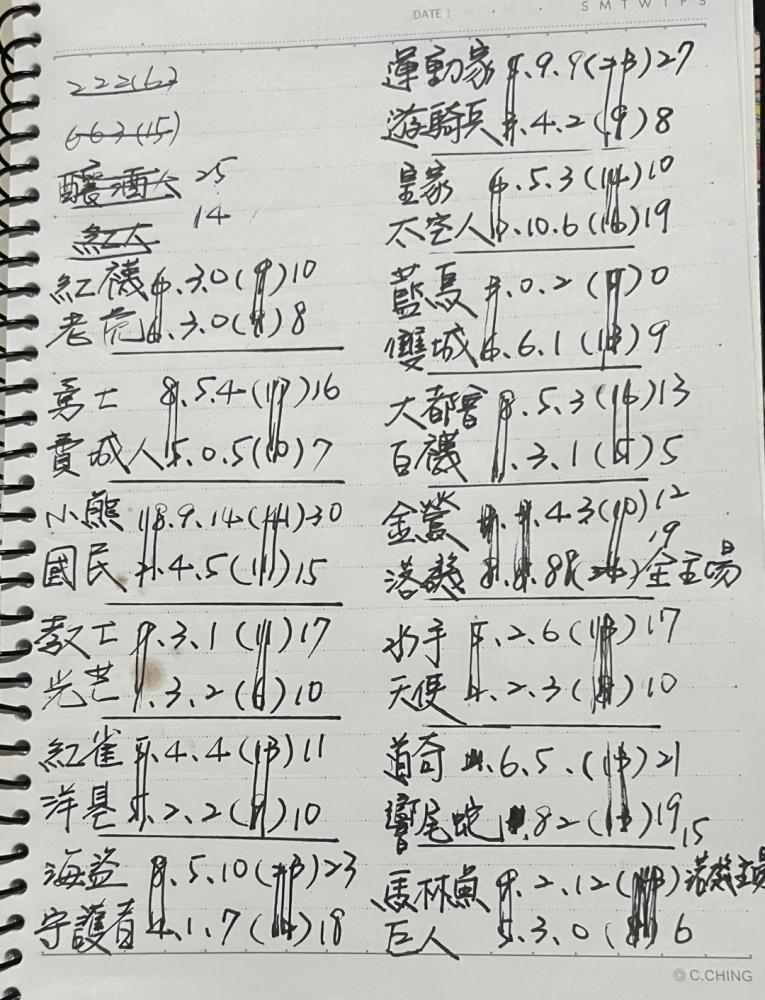 DATE :
S M T W T F S
222(6)
663(15)
釀酒人 25
紅人 14
紅襪 6.3.0(9)10
老虎 6.3.0(9)8
勇士 8.5.4(17)16
費城人 5.0.5(10)7
小熊 18.9.14(41)30
國民 2.4.5(11)15
教士 7.3.1(11)17
光芒 1.3.2(6)10
紅雀 5.4.4(13)11
洋基 5.2.2(9)10
海盜 8.5.10(23)23
守護者 4.1.7(14)18
運動家 5.9.9(23)27
遊騎兵 3.4.2(9)8
皇家 6.5.3(14)10
太空人 .10.6(16)19
藍鳥 3.0.2(5)0
雙城 6.6.1(13)9
大都會 8.5.3(16)13
白襪 1.3.1(5)5
金鶯 .4.3(10)12
落磯 .8 19 全主場
水手 5.2.6(13)17
天使 .2.3( )10
道奇 .6.5.( )21
響尾蛇 .82( )19 15
馬林魚 9.2.12( )落磯主場
巨人 5.3.0(8)6
C.CHING